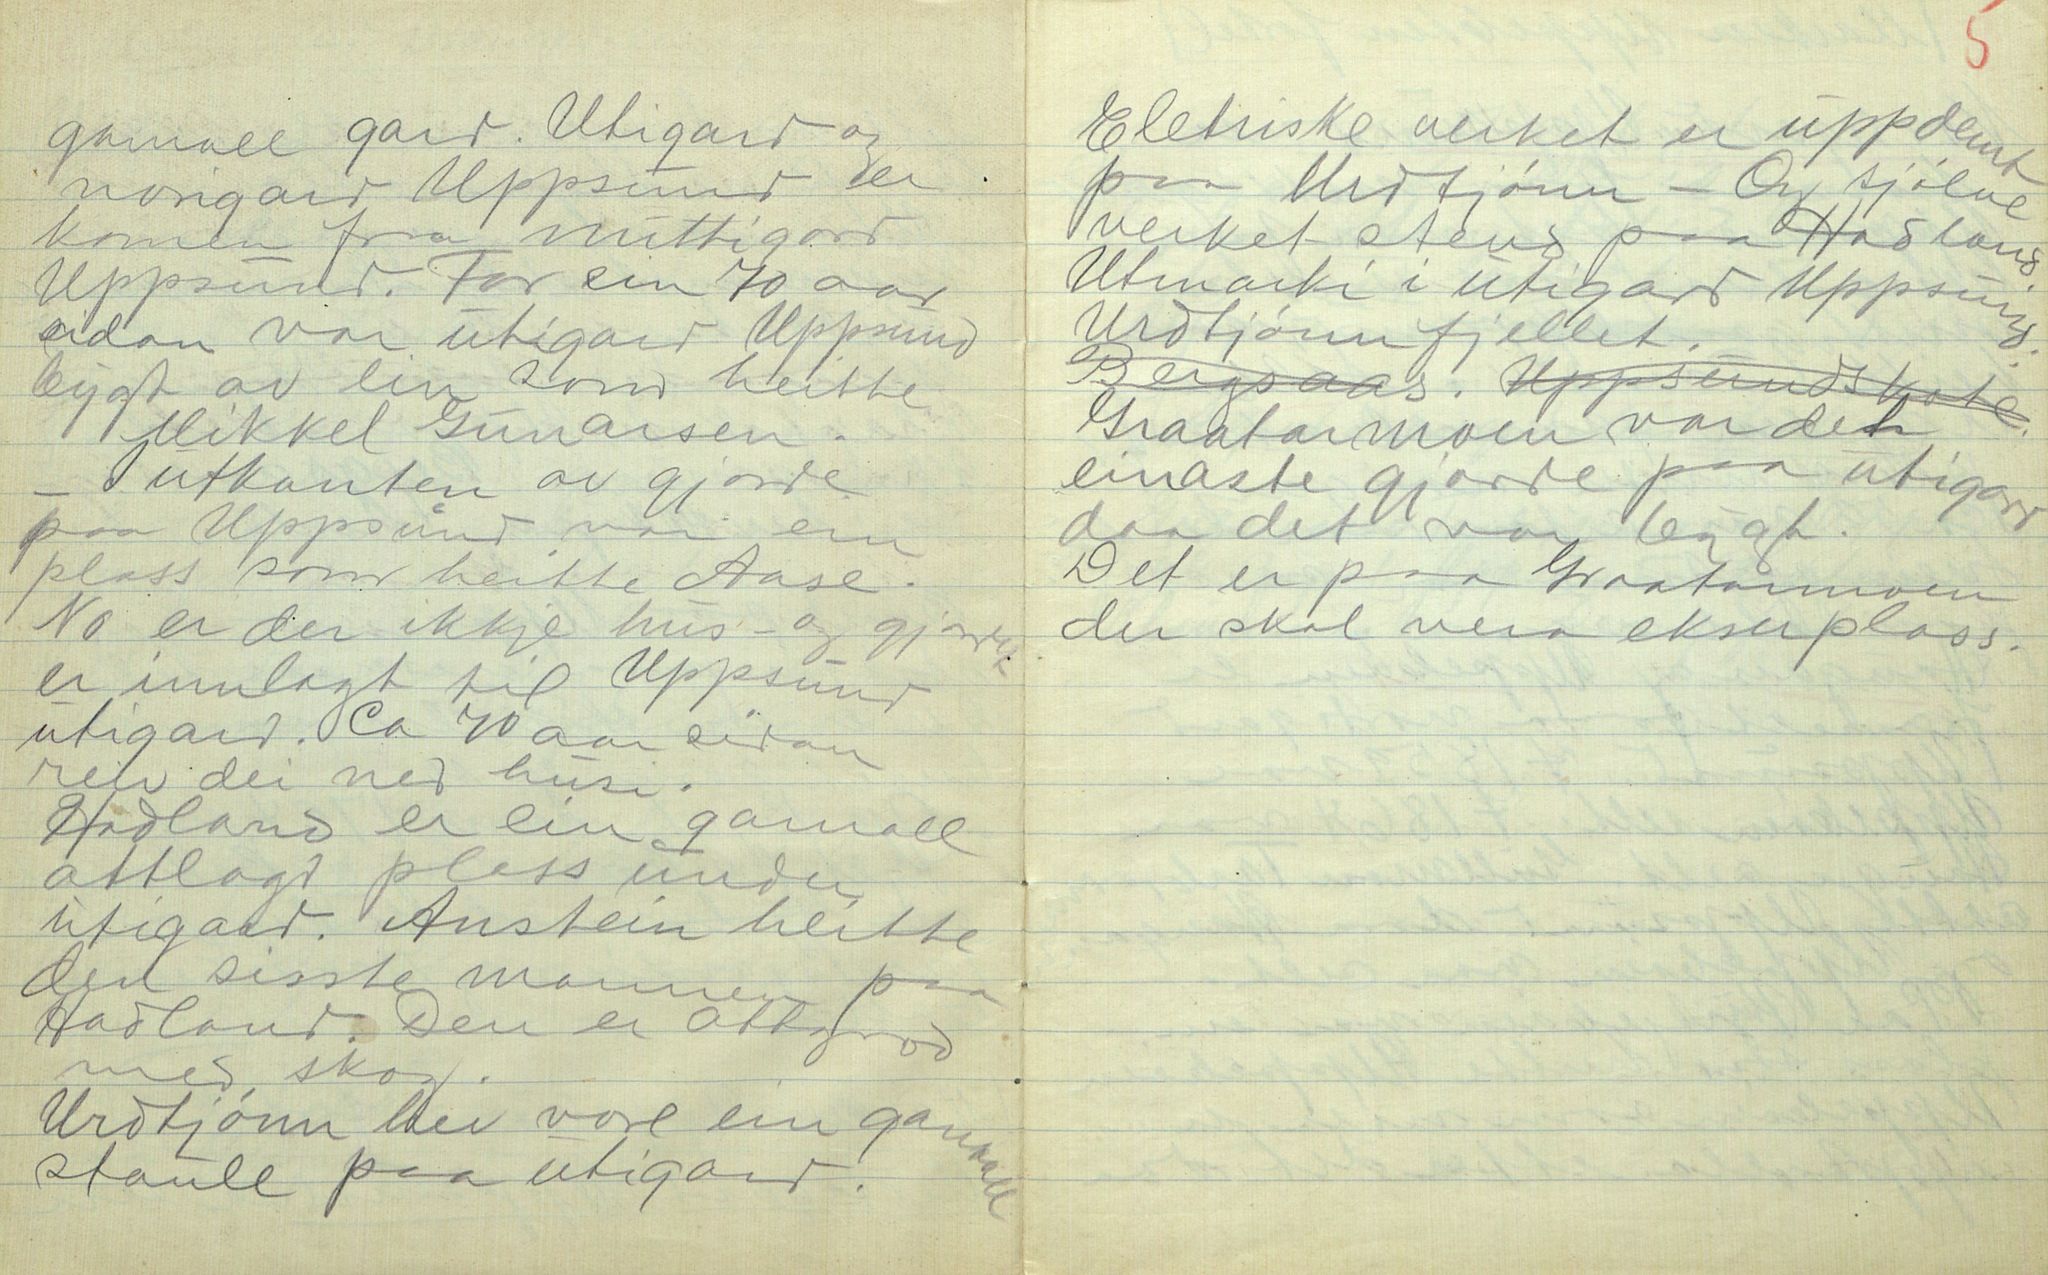 gamall gard. Utigard og
norigard Uppsund er
komen fraa mittigard
Uppsund. For ein 70 aar
sidan var utigard Uppsund
bygt av ein som heitte
Mikkel Gunarsen.
– I utkanten av gjorde
paa Uppsund var ein
plass som heitte Aase.
No er der ikkje hus og gjorde
er innlagt til Uppsund
utigard. Ca 70 aar sidan
reiv dei ned husi.
Hadland er ein gamall
attlagd plass under
utigard. Anstein heitte
den sisste mannen paa
Hadland. Den er attgrod
med skog.
Urdtjónn hev vore ein gamall
staull paa utigard.
5
Eletriske verket er uppdemt
paa Urdtjónn – Og sjølve
verket stend paa Hadland
Utmarki i utigard Uppsund.
Urdtjónnfjellet.
Bergsaas. Uppsundskote.
Graatarmoen var det
einaste gjorde paa utigard
daa det var bygt.
Det er paa Graatarmoen
der skal vera ekserplass.